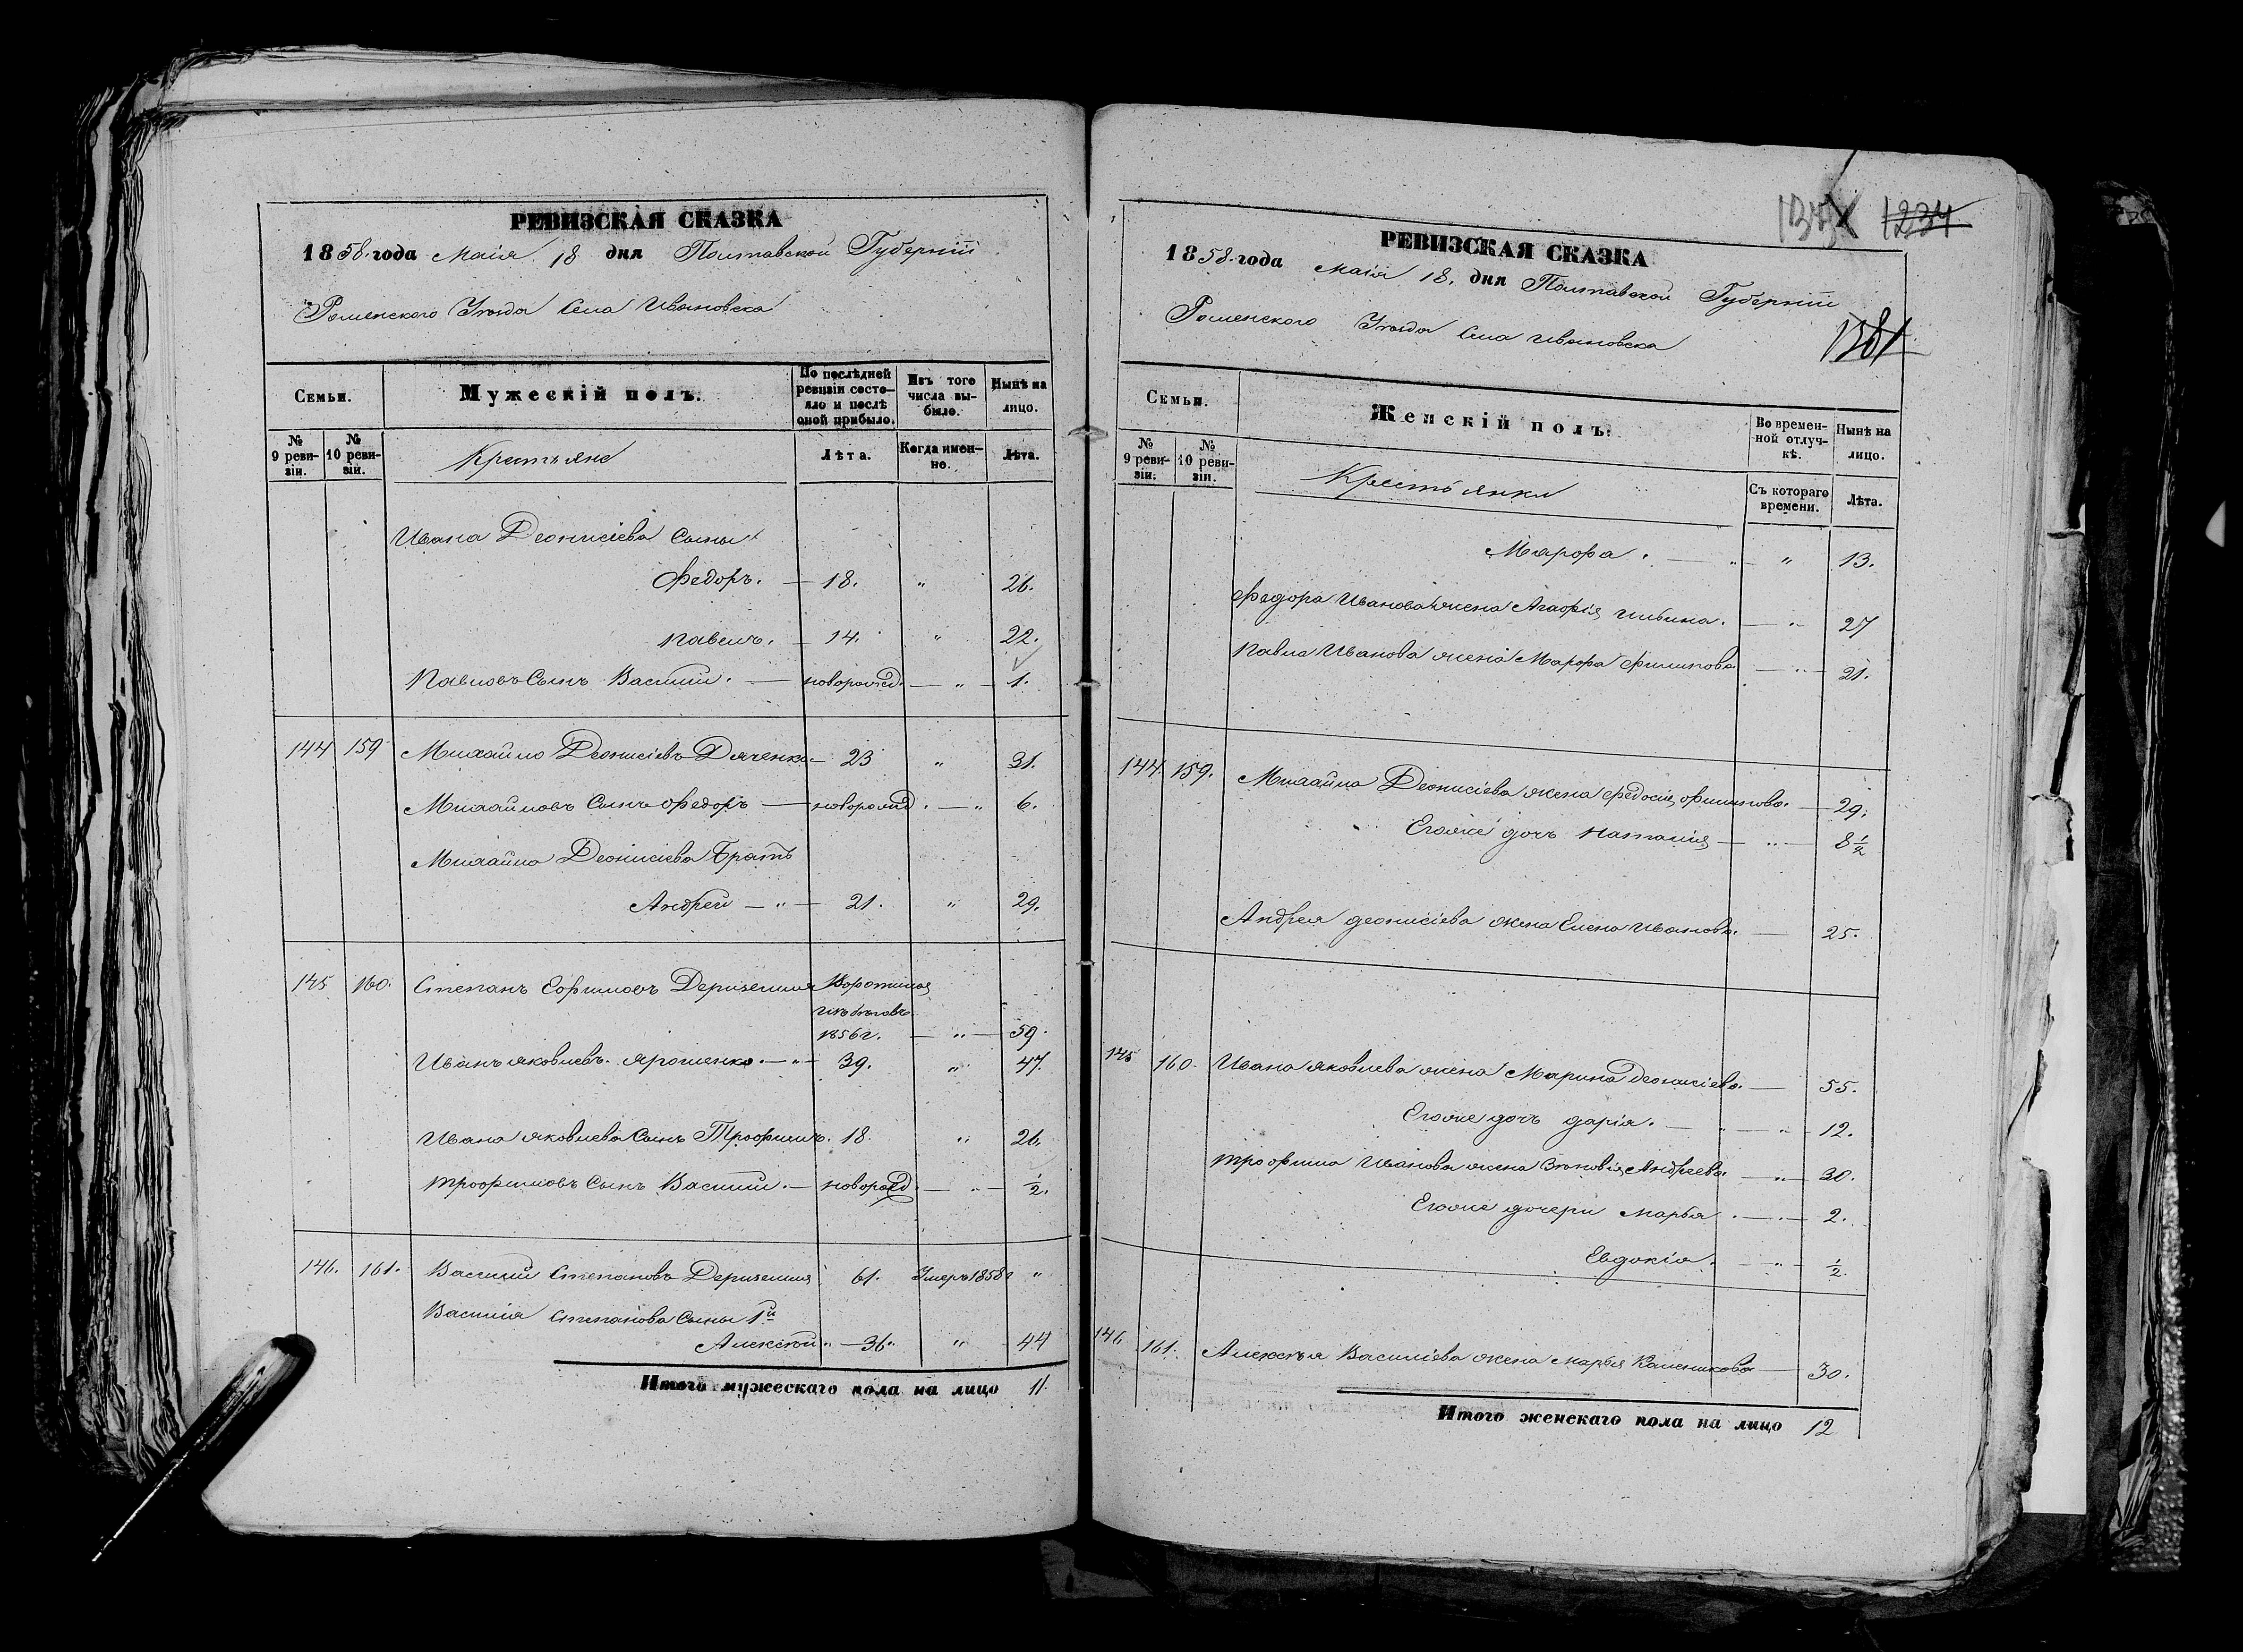 РЕВИЗСКАЯ СКАЗКА
1858 года Маія 18 дня Полтавской Губерніи
Роменского Уезда Села Ивановска
Семьи.
Мужескій полъ.
По послѣдней ревизіи состояло и послѣ оной прибыло.
Изъ того числа выбыло.
Нынѣ на лицо.
№ 9 ревизіи.
№ 10 ревизіи.
Крестьяне
Лѣта.
Когда именно.
Лѣта.
Ивана Деонисіева Сыны
Федоръ. — 18. " 26.
Павелъ. — 14. " 22.
Павловъ Сынъ Василій. — новорожд. — " — 1.
144 159 Михайло Деонисіевъ Дяченко — 23 " 31.
Михайловъ Сынъ Федоръ — новорожд. — " 6.
Михайла Деонисіева Братъ
Андрей — " — 21. " 29.
145 160. Степанъ Ефимовъ Дериземля Воротился
изъ бѣговъ
1856 г. — " — 59.
Иванъ Яковлевъ Ярошенко. — " — 39. " 47.
Ивана Яковлева Сынъ Трофимъ. 18. " 26.
Трофимовъ Сынъ Василій. — новорожд. — " — ½.
146. 161. Василій Степановъ Дериземля 61. Умеръ 1858 г "
Василія Степанова Сыны 1й
Алексѣй. " — 36. " 44
Итого мужескаго пола на лицо 11.
1234
РЕВИЗСКАЯ СКАЗКА
1858 года Маія 18. дня Полтавской Губерніи
Роменского Уезда Села Ивановска
1381
Семьи.
Женскій полъ.
Во временной отлучкѣ.
Нынѣ на лицо.
№ 9 ревизіи.
№ 10 ревизіи.
Крестьянки
Съ котораго времени.
Лѣта.
Марфа. — " — " 13.
Федора Иванова жена Агафія Ильина. — " — 27
Павла Иванова жена Марфа Филипова — " — 21.
144. 159. Михайла Деонисіева жена Федосія Филипова. — 29.
Егоже дочь Наталія — " — 8½
Андрея Деонисіева жена Елена Иванова. — 25.
145 160. Ивана Яковлева жена Марина Деонисіева. — 55.
Егоже дочь Дарія. — " — " — 12.
Трофима Иванова жена Зѣновія Андреева. — " — 30.
Егоже дочери Марья. — " — 2.
Евдокія. — " — ½.
146 161. Алексѣя Василіева жена Марья Каленикова — 30.
Итого женскаго пола на лицо 12